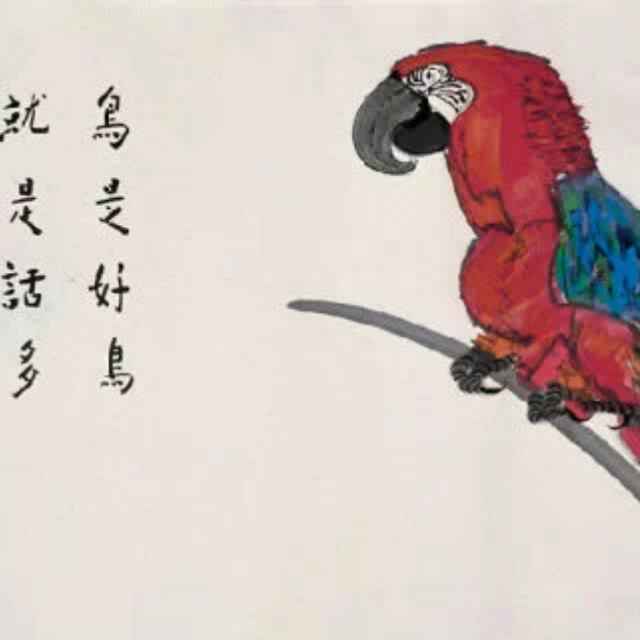 鳥是好鳥
就是話多